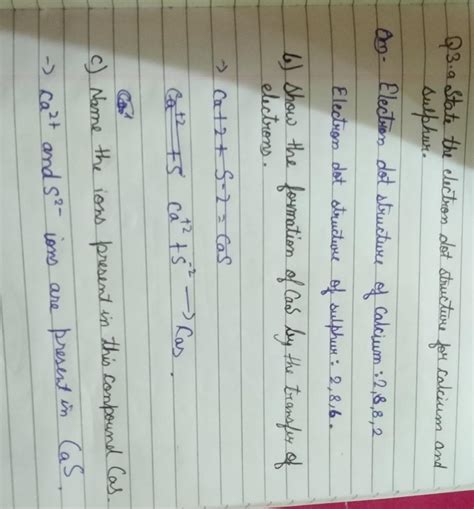 Q3.a State the electron dot structure for calcium and
sulphur.
Ans- Electron dot structure of calcium: 2,8,8,2
Electron dot structure of sulphur: 2,8,6.
b) Show the formation of CaS by the transfer of
electrons.
→ Ca+2 + S-2 = CaS
Ca+2 + S Ca+2 + S-2 → Cas.
c) Name the ions present in this compound Cas.
→ Ca2+ and S2- ions are present in CaS.